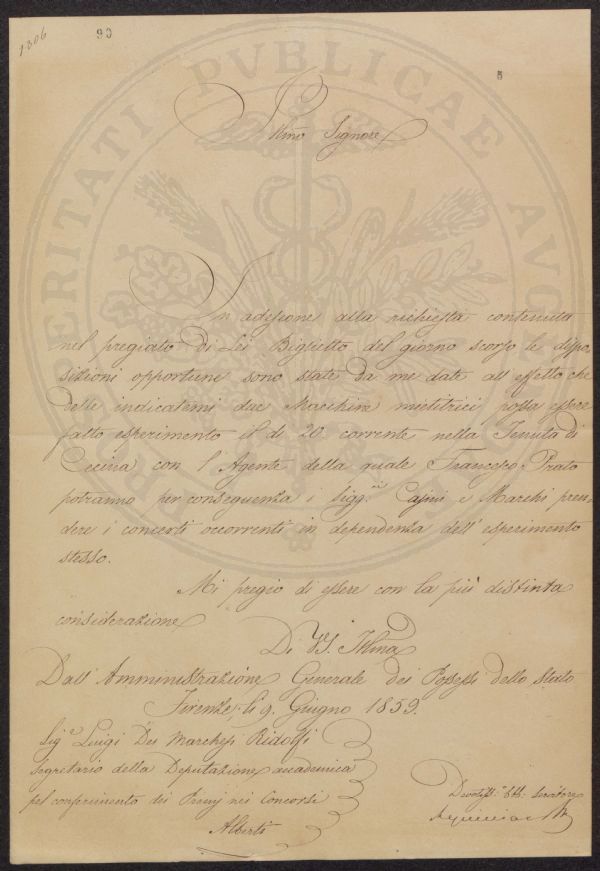 1306
90
5
Illmo Signore
In adesione alla richiesta contenuta
nel pregiato di Lei Biglietto del giorno scorso le dispo
sizioni opportune sono state da me date all'effetto che
delle indicatemi due Macchine mietitrici possa essere
fatto esperimento il dì 20 corrente nella Tenuta di
Cecina con l'Agente della quale Francesco Prato
potranno per conseguenza i Sigg.ri Cajani e Marchi pren
dere i concerti occorrenti in dependenza dell'esperimento
stesso.
Mi pregio di essere con la più distinta
considerazione
Di VS. Illma
Dall'Amministrazione Generale dei Possessi dello Stato
Firenze, li 9. Giugno 1859.
Sig.e Luigi Dei Marchesi Ridolfi
Segretario della Deputazione accademica
pel conferimento dei Premj nei Concorsi
Alberti
Devotiss.o Obb. Servitore
PROSPERITATI PVBLICAE